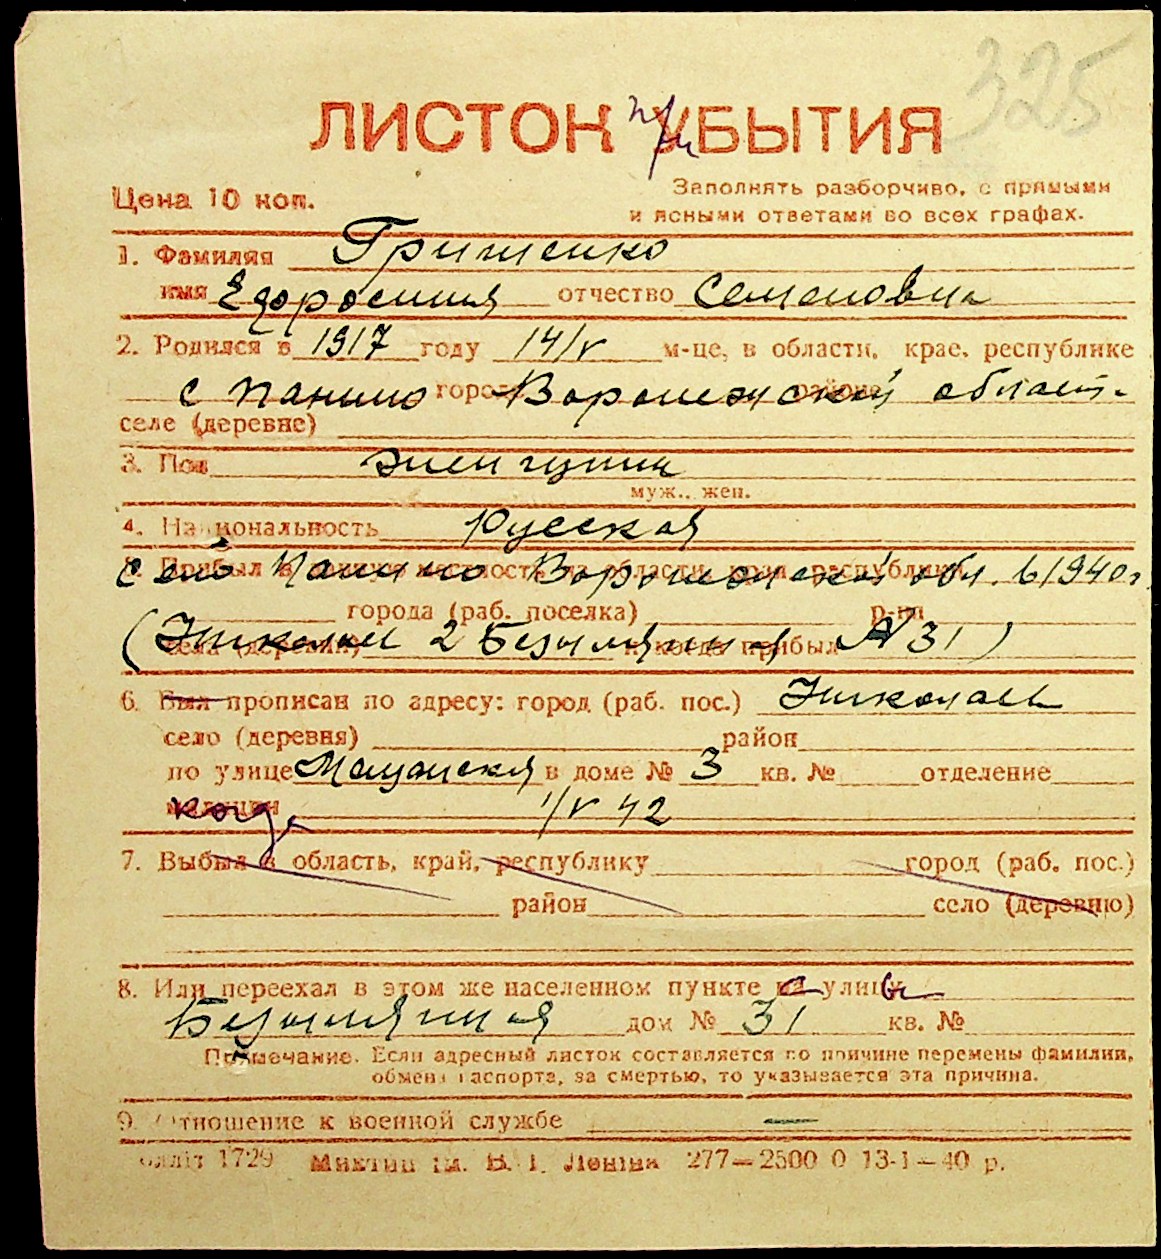 325
ЛИСТОК при УБЫТИЯ
Цена 10 коп.
Заполнять разборчиво, с прямыми
и ясными ответами во всех графах.
1. Фамилия Гриценко
имя Ефросиния отчество Семеновна
2. Родился в 1917 году 14/V м-це, в области, крае, республике
с Панино город Воронежской районе област.
селе (деревне)
3. Пол женщина
муж., жен.
4. Национальность Русская
село Панино Воронежской обл. в 1940 г.
города (раб. поселка) р-на
(Николаев 2 Безымянная № 31)
села (деревни) и когда прибыл
6. Был прописан по адресу: город (раб. пос.) Николаев
село (деревня) район
по улице Мещанская в доме № 3 кв. № отделение
милиции когда 1/V 42
7. Выбыл в область, край, республику город (раб. пос.)
район село (деревню)
8. Или переехал в этом же населенном пункте с улицы
Безымянная дом № 31 кв. №
Примечание. Если адресный листок составляется по причине перемены фамилии,
обмена паспорта, за смертью, то указывается эта причина.
9. Отношение к военной службе —
1729 им. В. І. Леніна 277—2500 0 13-І—40 р.